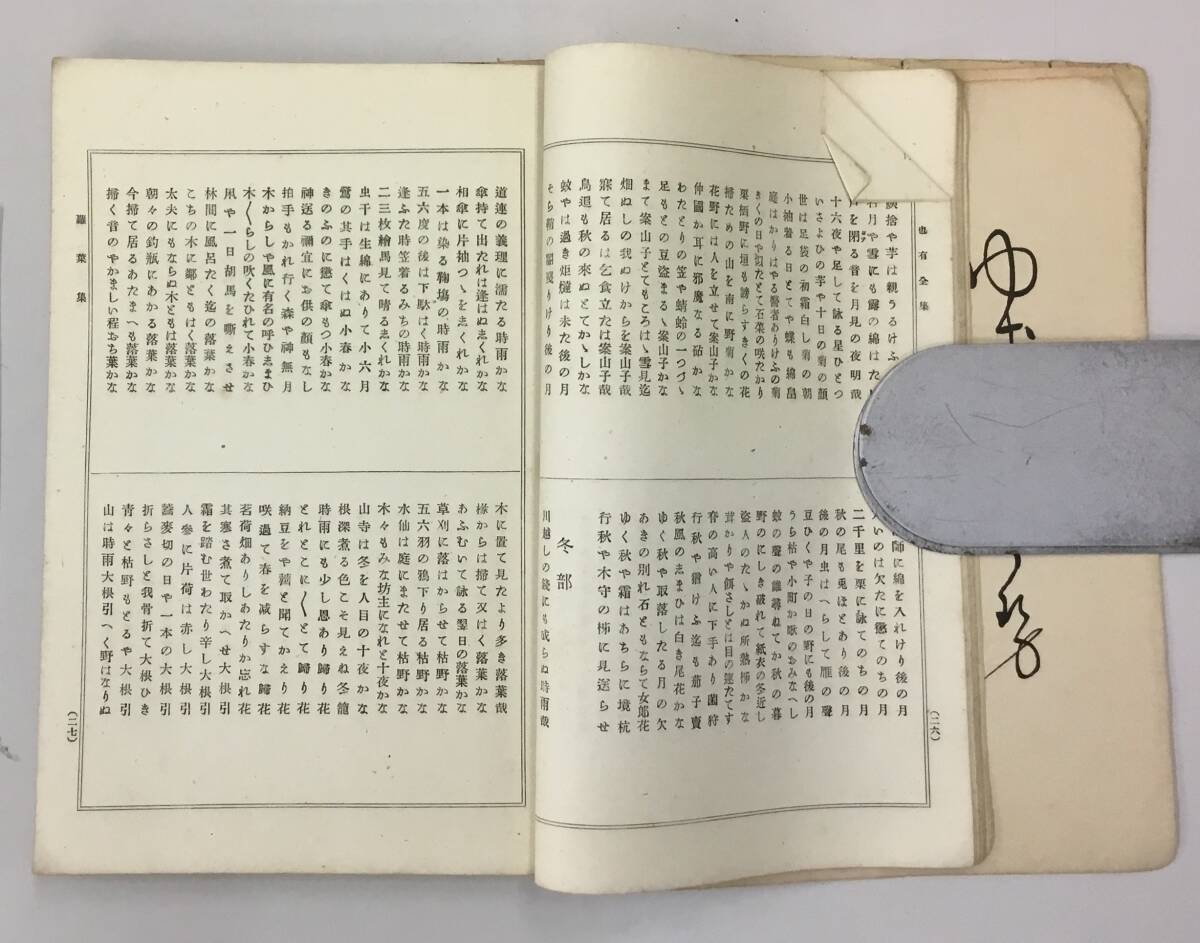 也有全集
十六夜や足して詠る星ひとつ
いさよひの芋や十日の菊の顔
世は足袋の初霜白し菊の朝
小袖着る日とてや蝶も綿畠
庭はかりはやる醫者ありけふの菊
栗栖野に垣も謗らすきくの花
掃ための山を南に野菊かな
花野には人を立せて案山子かな
仲國か耳に邪魔なる砧かな
わたとりの笠や蜻蛉の一つづゝ
足もとの豆盗まるゝ案山子かな
まて案山子とてもころはゝ雪見迄
畑ぬしの我ぬけからを案山子哉
寐て居るは乞食立たは案山子哉
鳥追も秋の來ぬとてかゝしかな
蚊やは過き炬燵は未た後の月
後の月
師に綿を入れけり後の月
いのは欠たに懲てのちの月
二千里を栗に詠てのちの月
秋の尾も兎ほとあり後の月
後の月虫はへらして雁の聲
豆ひくや子の日の野にも後の月
うら枯や小町か歌のおみなへし
蚊の聲の誰尋ねてか秋の暮
野のにしき破れて紙衣の冬近し
盗人のたゝかぬ所熟柿かな
茸かりや餌さしとは目の違たてす
春の高い人に下手あり菌狩
行秋や猶けふ迄も茄子賣
秋風の仕まひは白き尾花かな
ゆく秋や取落したる月の欠
あきの別れ石ともならて女郎花
ゆく秋や霜はあちらに境杭
行秋や木守の柿に見送らせ
冬部
川越しの錢にも成らぬ時雨哉
(二六)
道連の義理に濡たる時雨かな
傘持て出たれは逢はぬ志くれかな
相傘に片袖つゝを志くれかな
一本は染る鞠塲の時雨かな
五六度の後は下駄はく時雨かな
逢ふた時笠着るみちの時雨かな
二三枚繪馬見て晴る志くれかな
虫干は生綿にありて小六月
鶯の其手はくはぬ小春かな
きのふに懲て傘もつ小春かな
神送る禰宜にお供の顔もなし
拍手もかれ行く森や神無月
木からしや風に有名の呼ひ志まひ
木〳〵らしの吹くたひれて小春かな
凩や一日胡馬を嘶えさせ
林間に風呂たく迄の落葉かな
こちの木に鄰ともはく落葉かな
太夫にもならぬ木ともは落葉かな
朝々の釣瓶にあかる落葉かな
今掃て居るあたまへも落葉かな
掃く音のやかましい程おち葉かな
蘿葉集
木に置て見たより多き落葉哉
椽からは掃て又はく落葉かな
あふむいて詠る翌日の落葉かな
草刈に落はからせて枯野かな
五六羽の鴉下り居る枯野かな
水仙は庭にまたせて枯野かな
木々もみな坊主になれと十夜かな
山寺は冬を人目の十夜かな
根深煮る色こそ見えぬ冬籠
時雨にも少し恩あり歸り花
とれとこに〳〵とて歸り花
納豆をや蕣と聞てかえり花
咲過て春を减らすな歸花
茗荷畑ありしあたりか忘れ花
其寒さ煮て取かへせ大根引
霜を踏む世わたり辛し大根引
人參に片荷は赤し大根引
蕎麥切の日や一本の大根引
折らさしと我骨折て大根ひき
青々と枯野もとるや大根引
山は時雨大根引へく野はなりぬ
(二七)